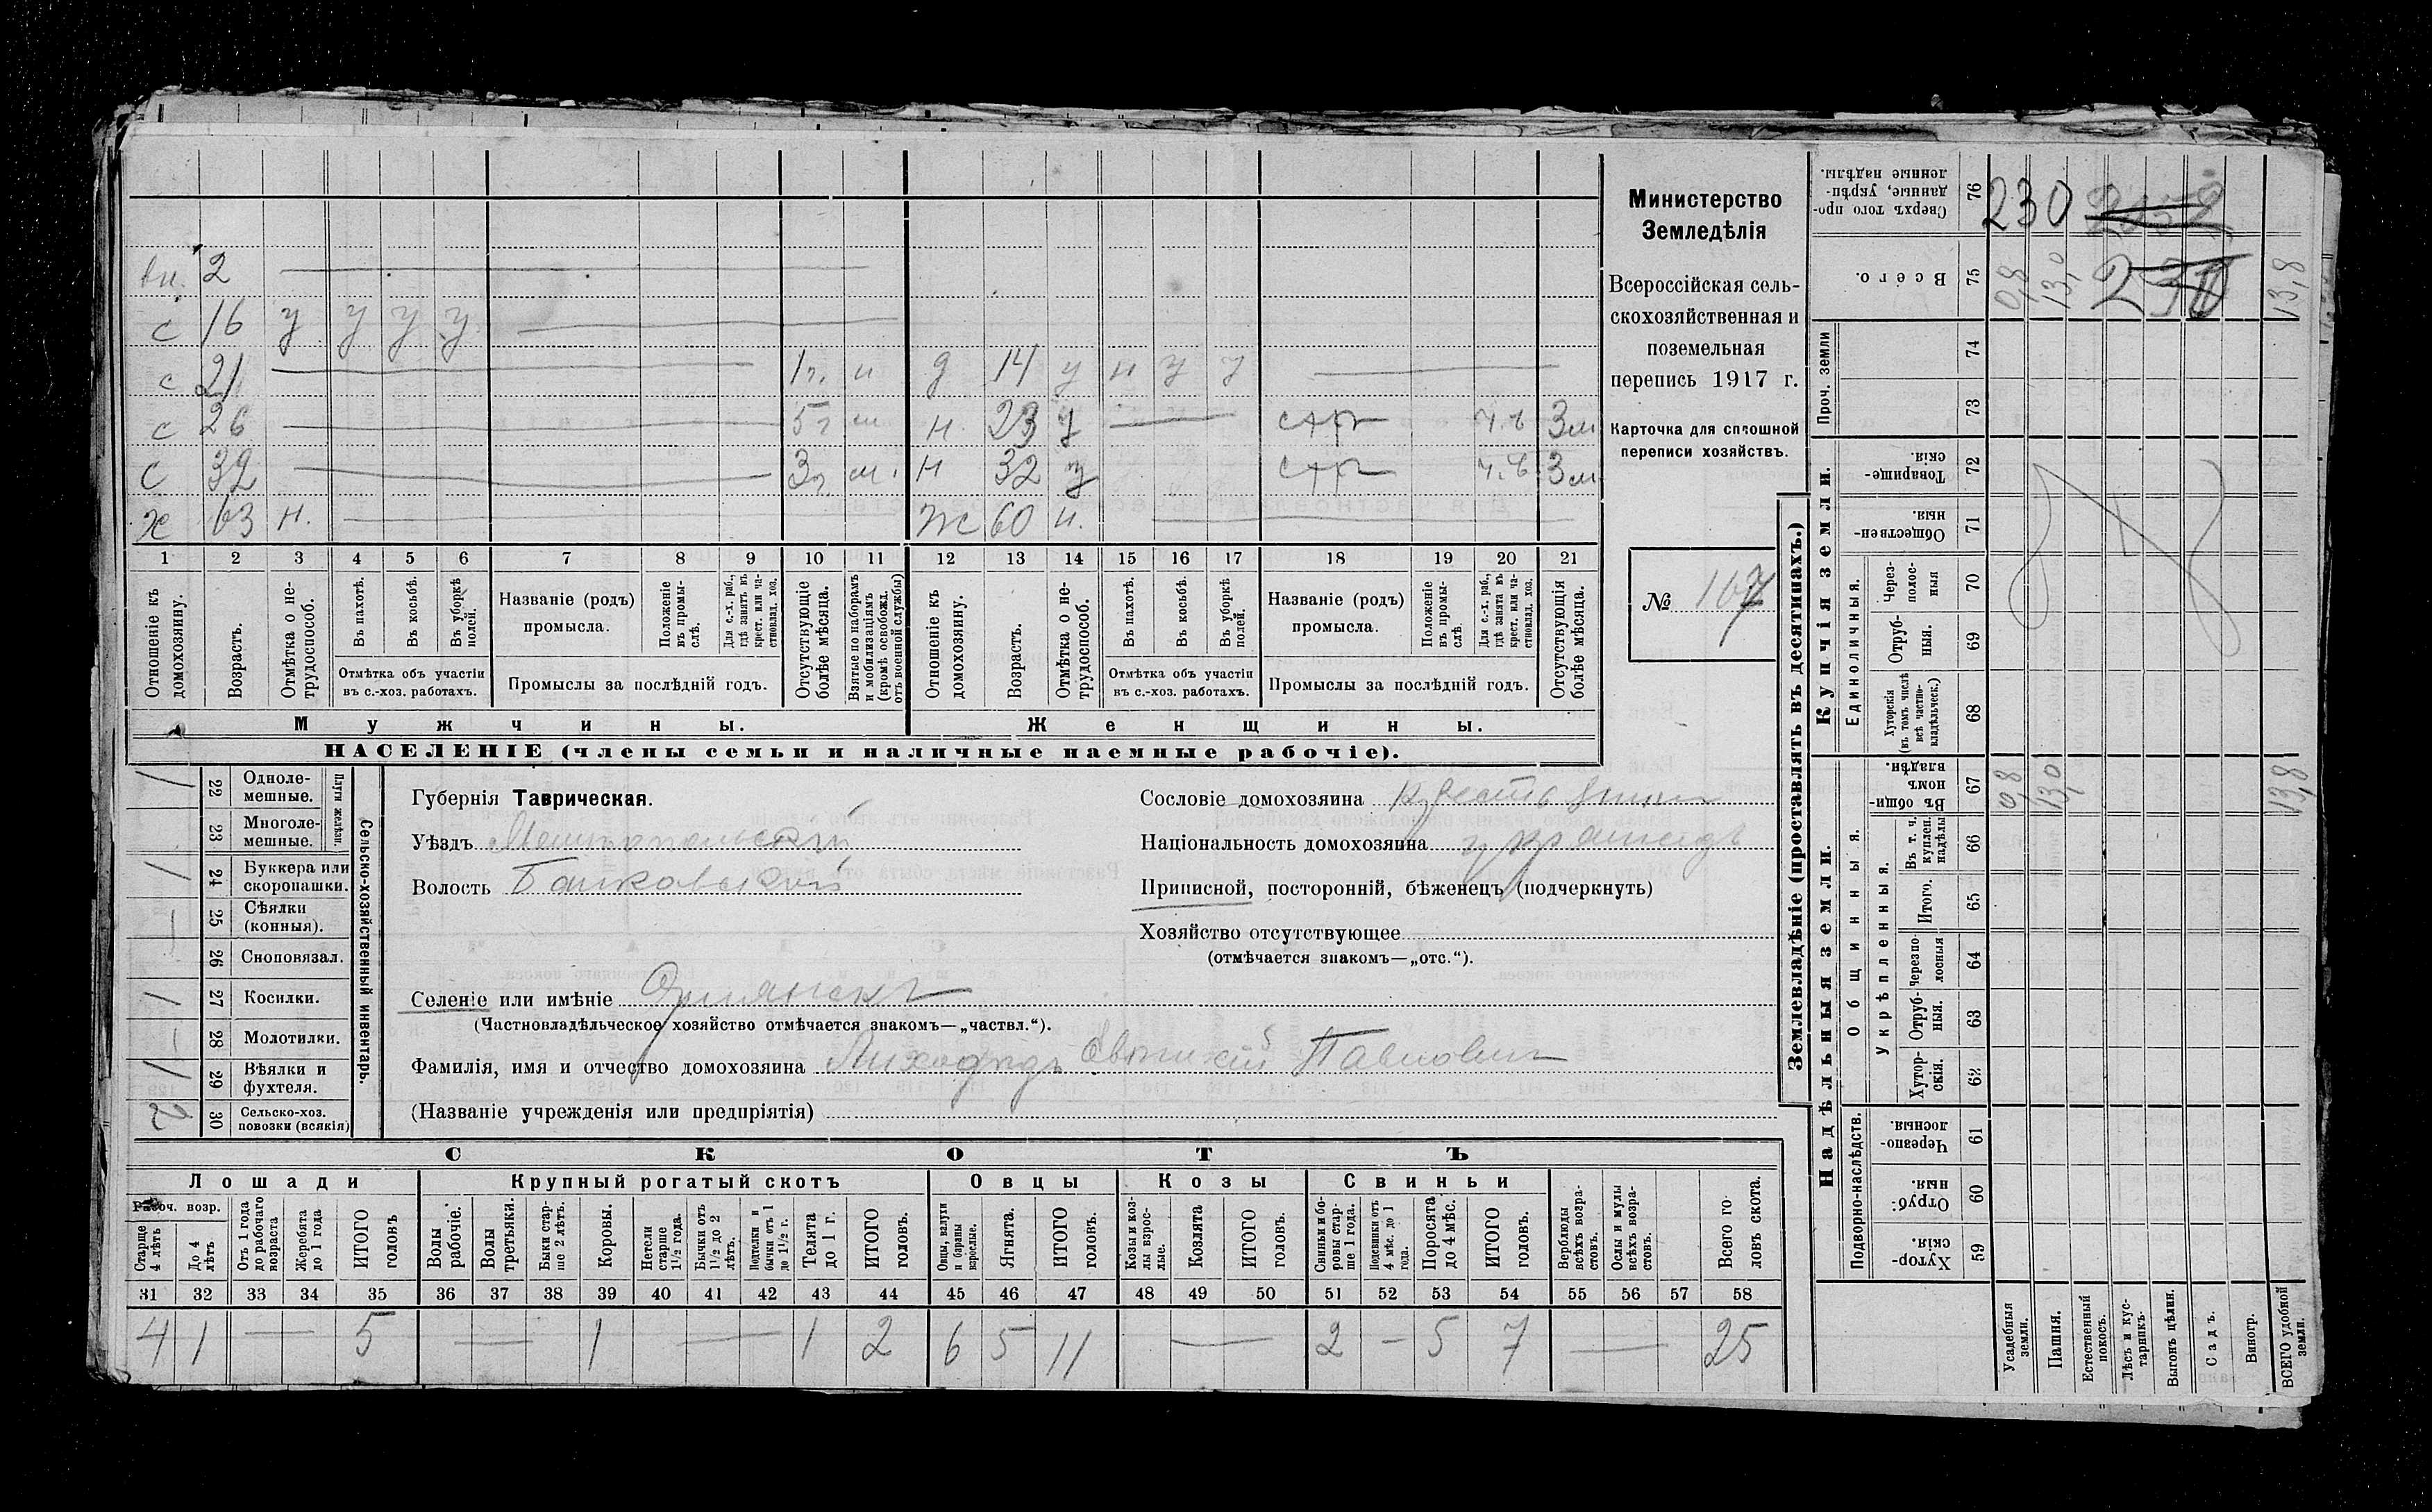 вн. 2
с 16 у у у у
с 21 1 г. м д 14 у н у у
с 26 5 г м н 23 у 3 м
с 32 3 г. м. н 32 у 3 м
х 63 н. ж 60 н.
1 2 3 4 5 6 7 8 9 10 11 12 13 14 15 16 17 18 19 20 21
Отношеніе къ домохозяину.
Возрастъ.
Отмѣтка о не-трудоспособ.
Въ пахотѣ.
Въ косьбѣ.
Въ уборкѣ полей.
Отмѣтка объ участіи въ с.-хоз. работахъ.
Названіе (родъ) промысла.
Положеніе въ промы-слѣ.
Для с.-х. раб., гдѣ занятъ въ крест. или ча-стновлад. хоз.
Промыслы за послѣдній годъ.
Отсутствующіе болѣе мѣсяца.
Взятые по наборамъ и мобилизаціямъ (кромѣ освобожд. отъ военной службы)
Отношеніе къ домохозяину.
Возрастъ.
Отмѣтка о не-трудоспособ.
Въ пахотѣ.
Въ косьбѣ.
Въ уборкѣ полей.
Отмѣтка объ участіи въ с.-хоз. работахъ.
Названіе (родъ) промысла.
Положеніе въ промы-слѣ.
Для с.-х. раб., гдѣ занята въ крест. или ча-стновлад. хоз.
Промыслы за послѣдній годъ.
Отсутствующія болѣе мѣсяца.
Мужчины. Женщины.
НАСЕЛЕНІЕ (члены семьи и наличные наемные рабочіе).
Министерство
Земледѣлія
Всероссійская сель-
скохозяйственная и
поземельная
перепись 1917 г.
Карточка для сплошной
переписи хозяйствъ.
№ 167
Сельско-хозяйственный инвентарь.
Плуги желѣзн.
1 22 Одноле-мешные.
23 Многоле-мешные.
1 24 Буккера или скоропашки.
— 25 Сѣялки (конныя).
26 Сноповязал.
1 27 Косилки.
— 28 Молотилки.
1 29 Вѣялки и фухтеля.
2 30 Сельско-хоз. повозки (всякія)
Губернія Таврическая.
Уѣздъ Мелитопольскій
Волость
Сословіе домохозяина
Національность домохозяина
Приписной, посторонній, бѣженецъ (подчеркнуть)
Хозяйство отсутствующее
(отмѣчается знакомъ—„отс.“).
Селеніе или имѣніе
(Частновладѣльческое хозяйство отмѣчается знакомъ—„частвл.“).
Фамилія, имя и отчество домохозяина Павлович
(Названіе учрежденія или предпріятія)
СКОТЪ
Лошади Крупный рогатый скотъ Овцы Козы Свиньи
Рабоч. возр.
Старше 4 лѣтъ
До 4 лѣтъ
Отъ 1 года до рабочаго возраста
Жеребята до 1 года
ИТОГО головъ
Волы рабочіе.
Волы третьяки.
Быки стар-ше 2 лѣтъ.
Коровы.
Нетели старше 1½ года.
Бычки отъ 1½ до 2 лѣтъ.
Подтелки и бычки отъ 1 до 1½ г.
Телята до 1 г.
ИТОГО головъ.
Овцы, валухи и бараны взрослые.
Ягнята.
ИТОГО головъ.
Козы и коз-лы взрос-лые.
Козлята
ИТОГО головъ.
Свиньи и бо-ровы стар-ше 1 года.
Подсвинки отъ 4 мѣс. до 1 года.
Поросята до 4 мѣс.
ИТОГО головъ.
Верблюды всѣхъ возра-стовъ.
Ослы и мулы всѣхъ возра-стовъ.
Всего го-ловъ скота.
31 32 33 34 35 36 37 38 39 40 41 42 43 44 45 46 47 48 49 50 51 52 53 54 55 56 57 58
4 1 — 5 — 1 — 1 2 6 5 11 — 2 — 5 7 — 25
Землевладѣніе (проставлять въ десятинахъ.)
Сверхъ того про-данные, укрѣп-ленные надѣлы. 76 230
Всего. 75 0,8 13,0 230 13,8
Проч. земли 74
73
Купчія земли.
Товарище-скія. 72
Обществен-ныя. 71
Единоличныя.
Через-полос-ныя 70
Отруб-ныя. 69
Хуторскія (въ томъ числѣ всѣ частно-владѣльческ.) 68
Надѣльныя земли.
Общинныя.
Въ общи-номъ владѣн. 67 0,8 13,0 13,8
Укрѣпленныя.
Въ т. ч. куплен. надѣлы 66
Итого. 65
Черезпо-лосныя 64
Отруб-ныя. 63
Хутор-скія. 62
Подворно-наслѣдств.
Черезпо-лосныя. 61
Отруб-ныя. 60
Хутор-скія. 59
Усадебныя земли.
Пашня.
Естественный покосъ.
Лѣсъ и кус-тарникъ.
Выгонъ цѣлин.
Садъ.
Виногр.
ВСЕГО удобной земли.